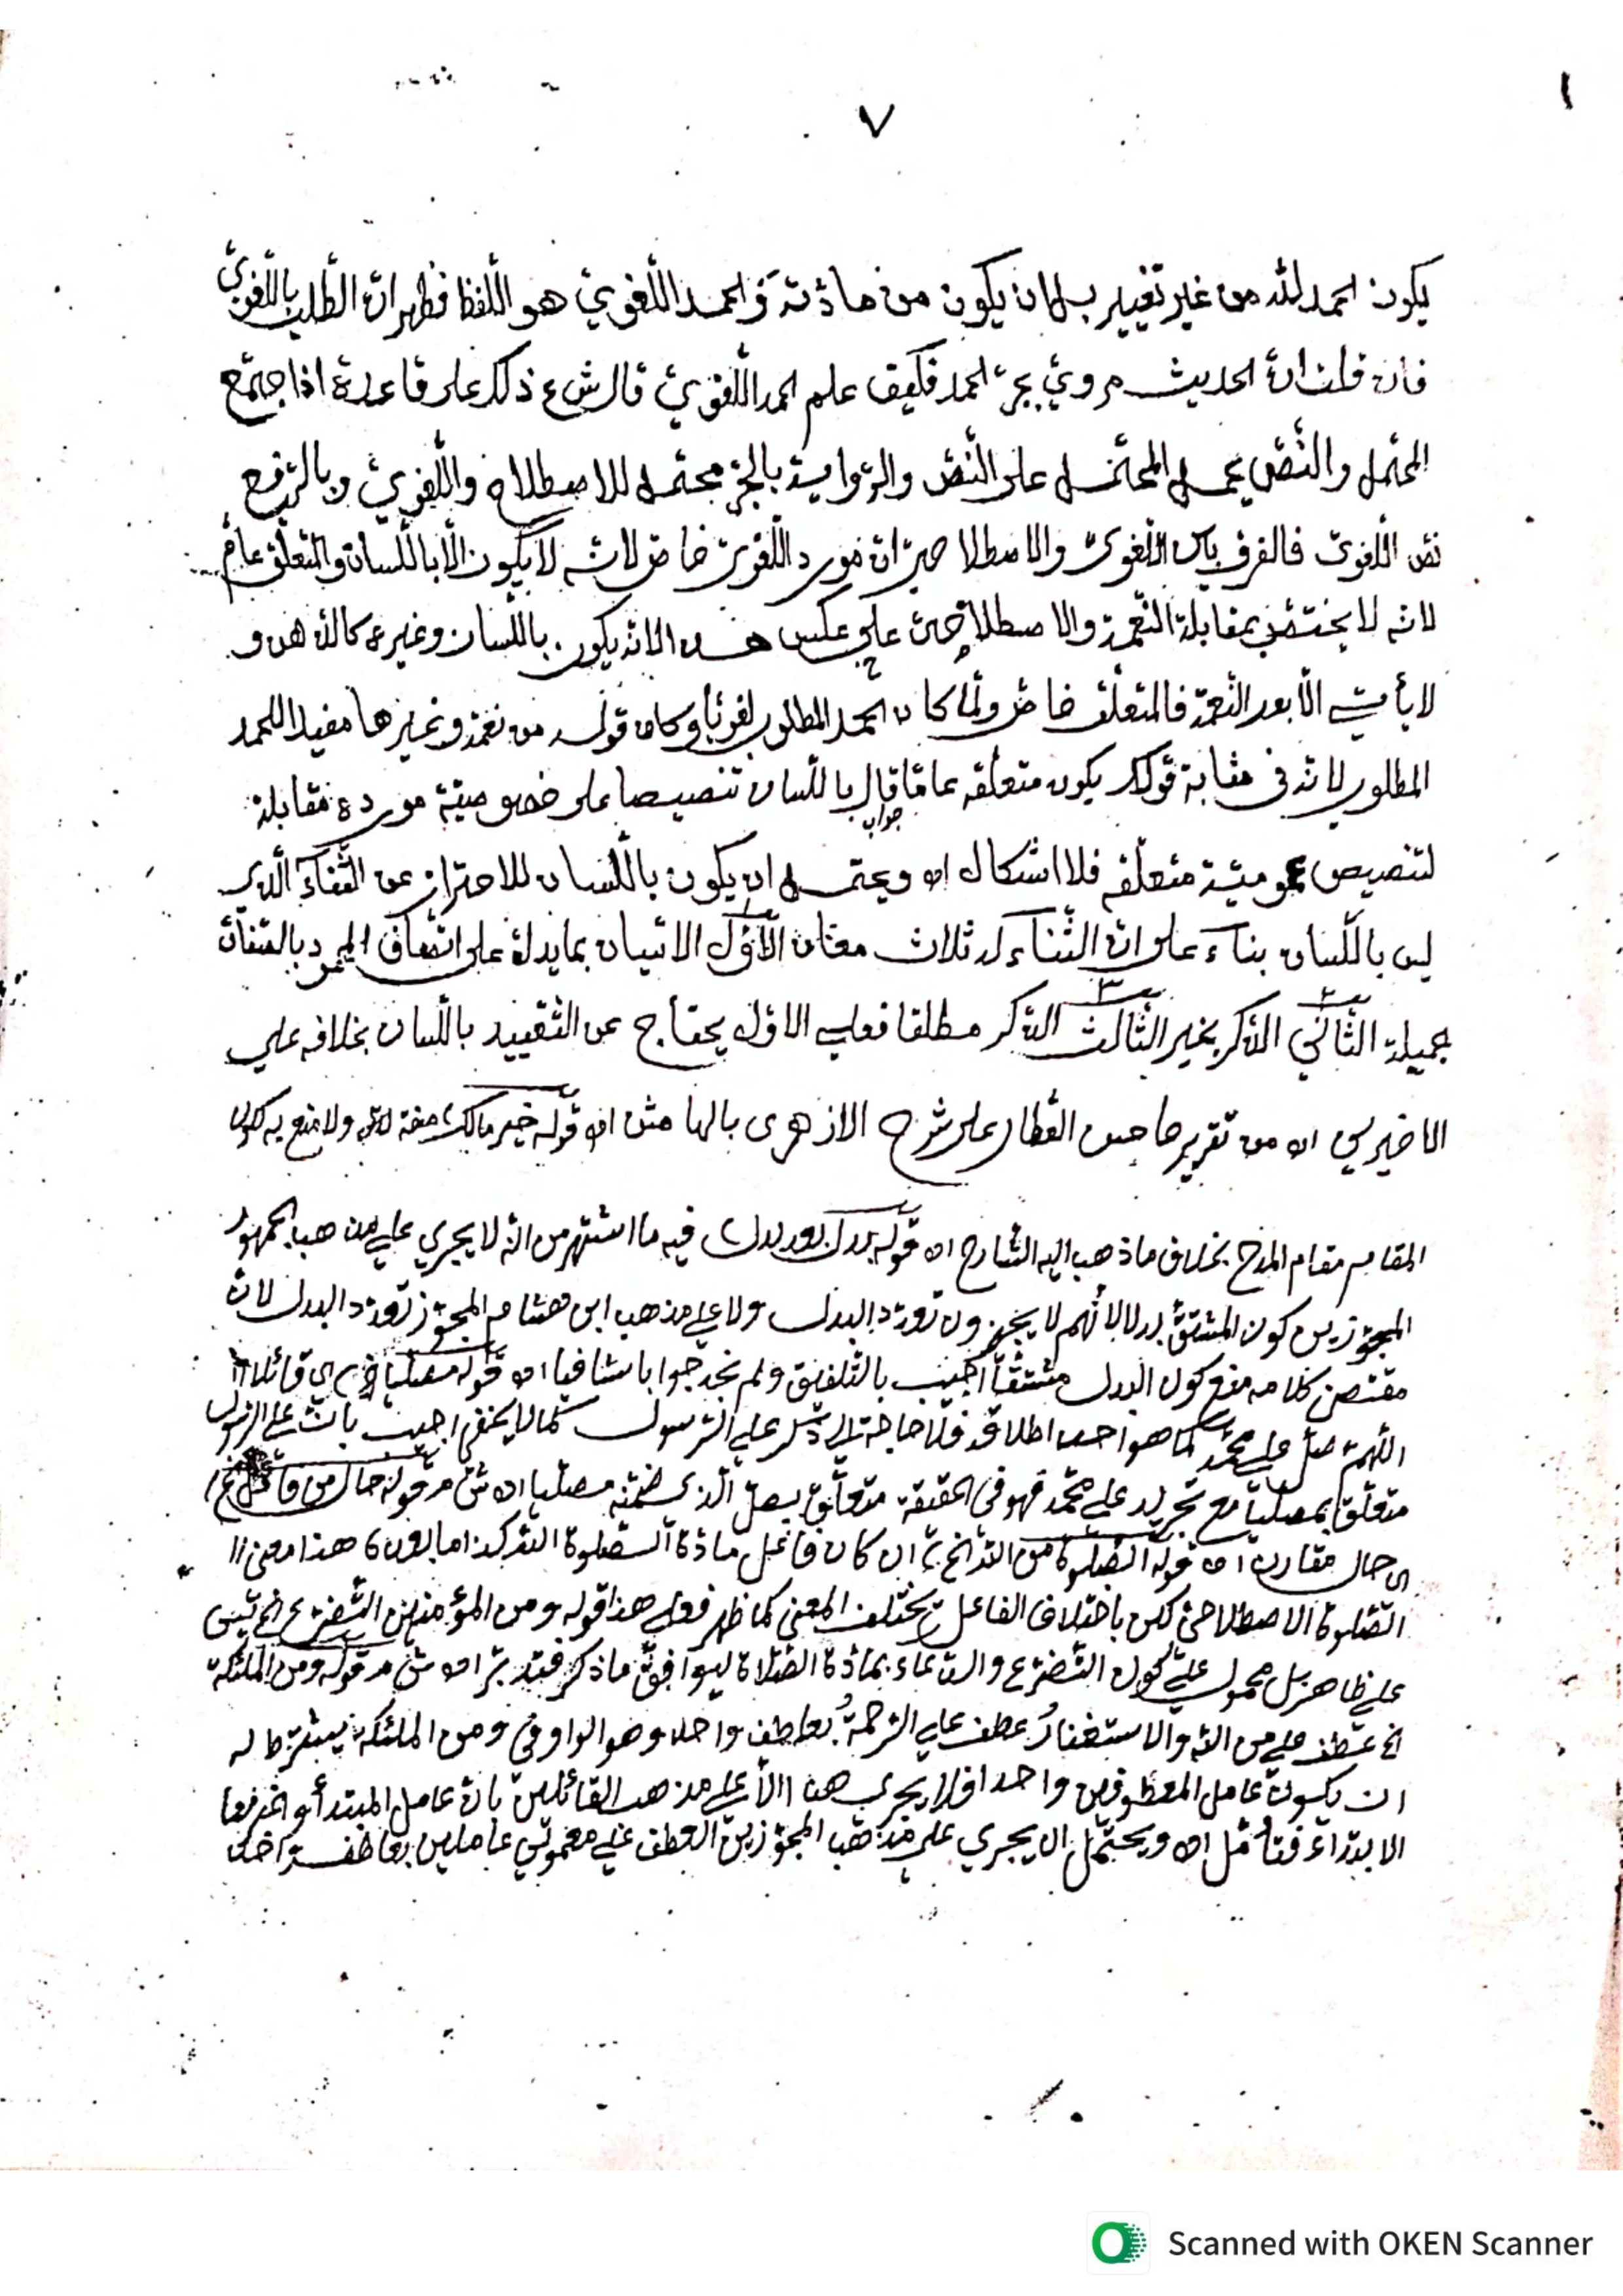 ١
٧
يكون الحمد لله من غير تغيير بل بان يكون من مادّته والحمد اللّغويّ هو اللّفظ فظهر انّ الطّلب باللّغويّ
فان قلت انّ الحديث مرويّ بجرّ الحمد فكيف علم الحمد اللّغويّ قال ش ع ذلك على قاعدة اذا اجتمع
المحتمل والنّصّ يحمل المحتمل على النّصّ والرّواية بالجرّ محتمل للاصطلاح واللّغويّ وبالرّفع
نصّ اللّغويّ فالفرق بين اللّغويّ والاصطلاحيّ انّ مورد اللّغويّ خاصّ لانّه لا يكون الّا باللّسان والمتعلّق عامّ
لانّه لا يختصّ بمقابلة النّعمة والاصطلاحيّ على عكس هذا لانّه يكون باللّسان وغيره كالذهن و
لا يأتي الّا بعد النّعمة فالمتعلّق خاصّ ولمّا كان الحمد المطلوب لغويّا وكان قوله من نعمة وغيرها مفيدا للحمد
المطلوب لانّه في مثابة قولك يكون متعلّقه عامّا قال باللّسان تنصيصا على خصوصيّة مورده مقابلة
جواب
لتنصيص عموميّة متعلّقه فلا اشكال اه ويحتمل ان يكون باللّسان للاحتراز عن الثّناء الّذي
ليس باللّسان بناء على انّ الثّناء له ثلاث معان الأوّل الاتيان بما يدلّ على اتّصاف المحمود بالصّفات
جميلة الثّاني الذّكر بخير الثّالث الذّكر مطلقا فعلى الاوّل يحتاج عن التّقييد باللّسان بخلافه علي
الاخيرين اه من تقرير صاحب العطّار على شرح الازهرى بالهامش اه قوله خير مالك صفة لله ولا منع به كون
المقام مقام المدح بخلاف ما ذهب اليه الشّارح اه قوله بدل بعد بدل فيه ما اشتهر من انّه لا يجري على مذهب الجمهور
المجوّزين كون المشتقّ بدلا لأنّهم لا يجوّزون تعدّد البدل ولا على مذهب ابن هشام المجوّز تعدّد البدل لانّ
مقتضى كلامه منع كون البدل مشتقّا اجيب بالتّلفيق ولم نجد جوابا شافيا اه قوله مصلّيا اى قائلا
اللّهمّ صلّ على محمّد كما هو احد اطلاقه فلا حاجة الى ذكر على الرّسول كما لا يخفى اجيب بانّ على الرّسول
متعلّق بمصلّيا مع تجريد على محمّد فهو فى الحقيقة متعلّق بصلّ الّذى ضمنه مصلّيا اه ش م قوله حال من فاعل
اى حال مقارنة اه قوله الصّلوة من الله الخ ان كان فاعل مادّة الصّلوة الله كذا ما بعده هذا معنى
الصّلوة الاصطلاحيّ لكن باختلاف الفاعل يختلف المعنى كما ظهر فعلى هذا قوله ومن المؤمنين التّضرّع الخ ليس
على ظاهره بل محمول على كون التّضرّع والدّعاء بمادّة الصّلاة ليوافق ما ذكر فتدبّر اه ش م قوله ومن الملئكة
الخ عطف على من الله والاستغفار عطف علي الرّحمة بعاطف واحد وهو الواو في ومن الملئكة يشترط له
ان يكون عامل المعطوفين واحدا فلا يجرى هذا الّا على مذهب القائلين بانّ عامل المبتدأ والخبر
الابتداء فتأمّل اه ويحتمل ان يجري على مذهب المجوّزين العطف على معمولي عاملين بعاطف واحد
Scanned with OKEN Scanner